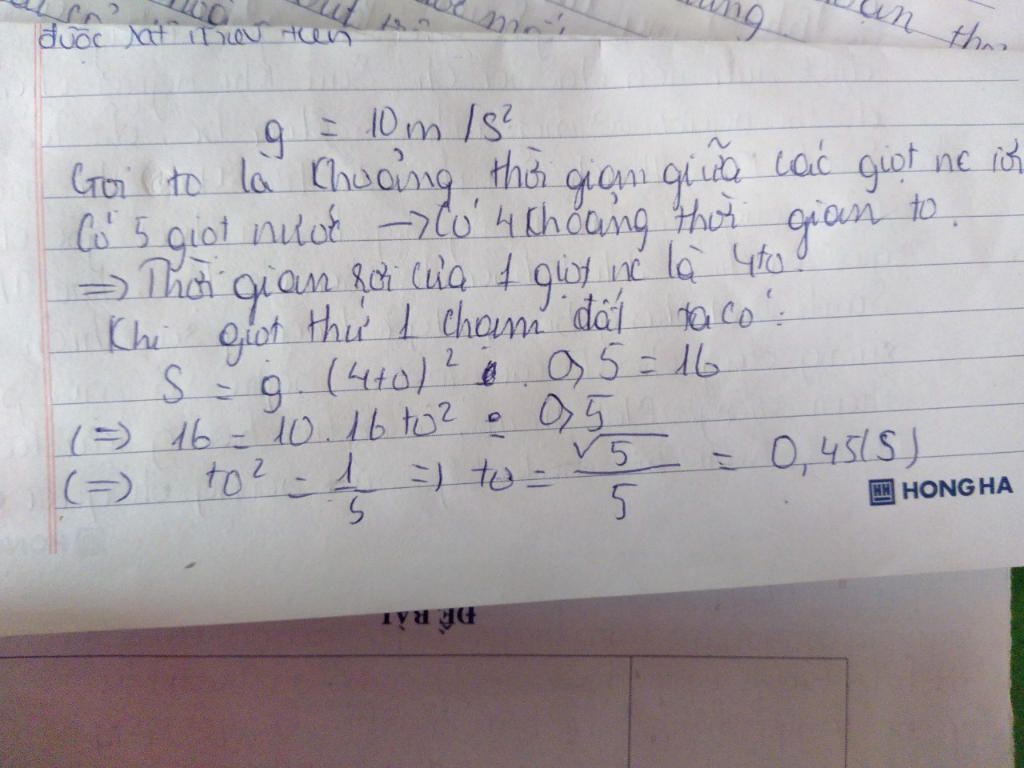 được
g = 10m/s²
Gọi to là Khoảng thời gian giữa các giọt nc rơi
Có 5 giọt nước → Có 4 khoảng thời gian to.
=> Thời gian rơi của 1 giọt nc là 4to.
Khi giọt thứ 1 chạm đất ta có:
S = g. (4to)² . 0,5 = 16
(=) 16 = 10.16to² . 0,5
(=) to² = 1/5 => to = √5/5 = 0,45(S)
HH HONG HA
ĐỀ BÀI